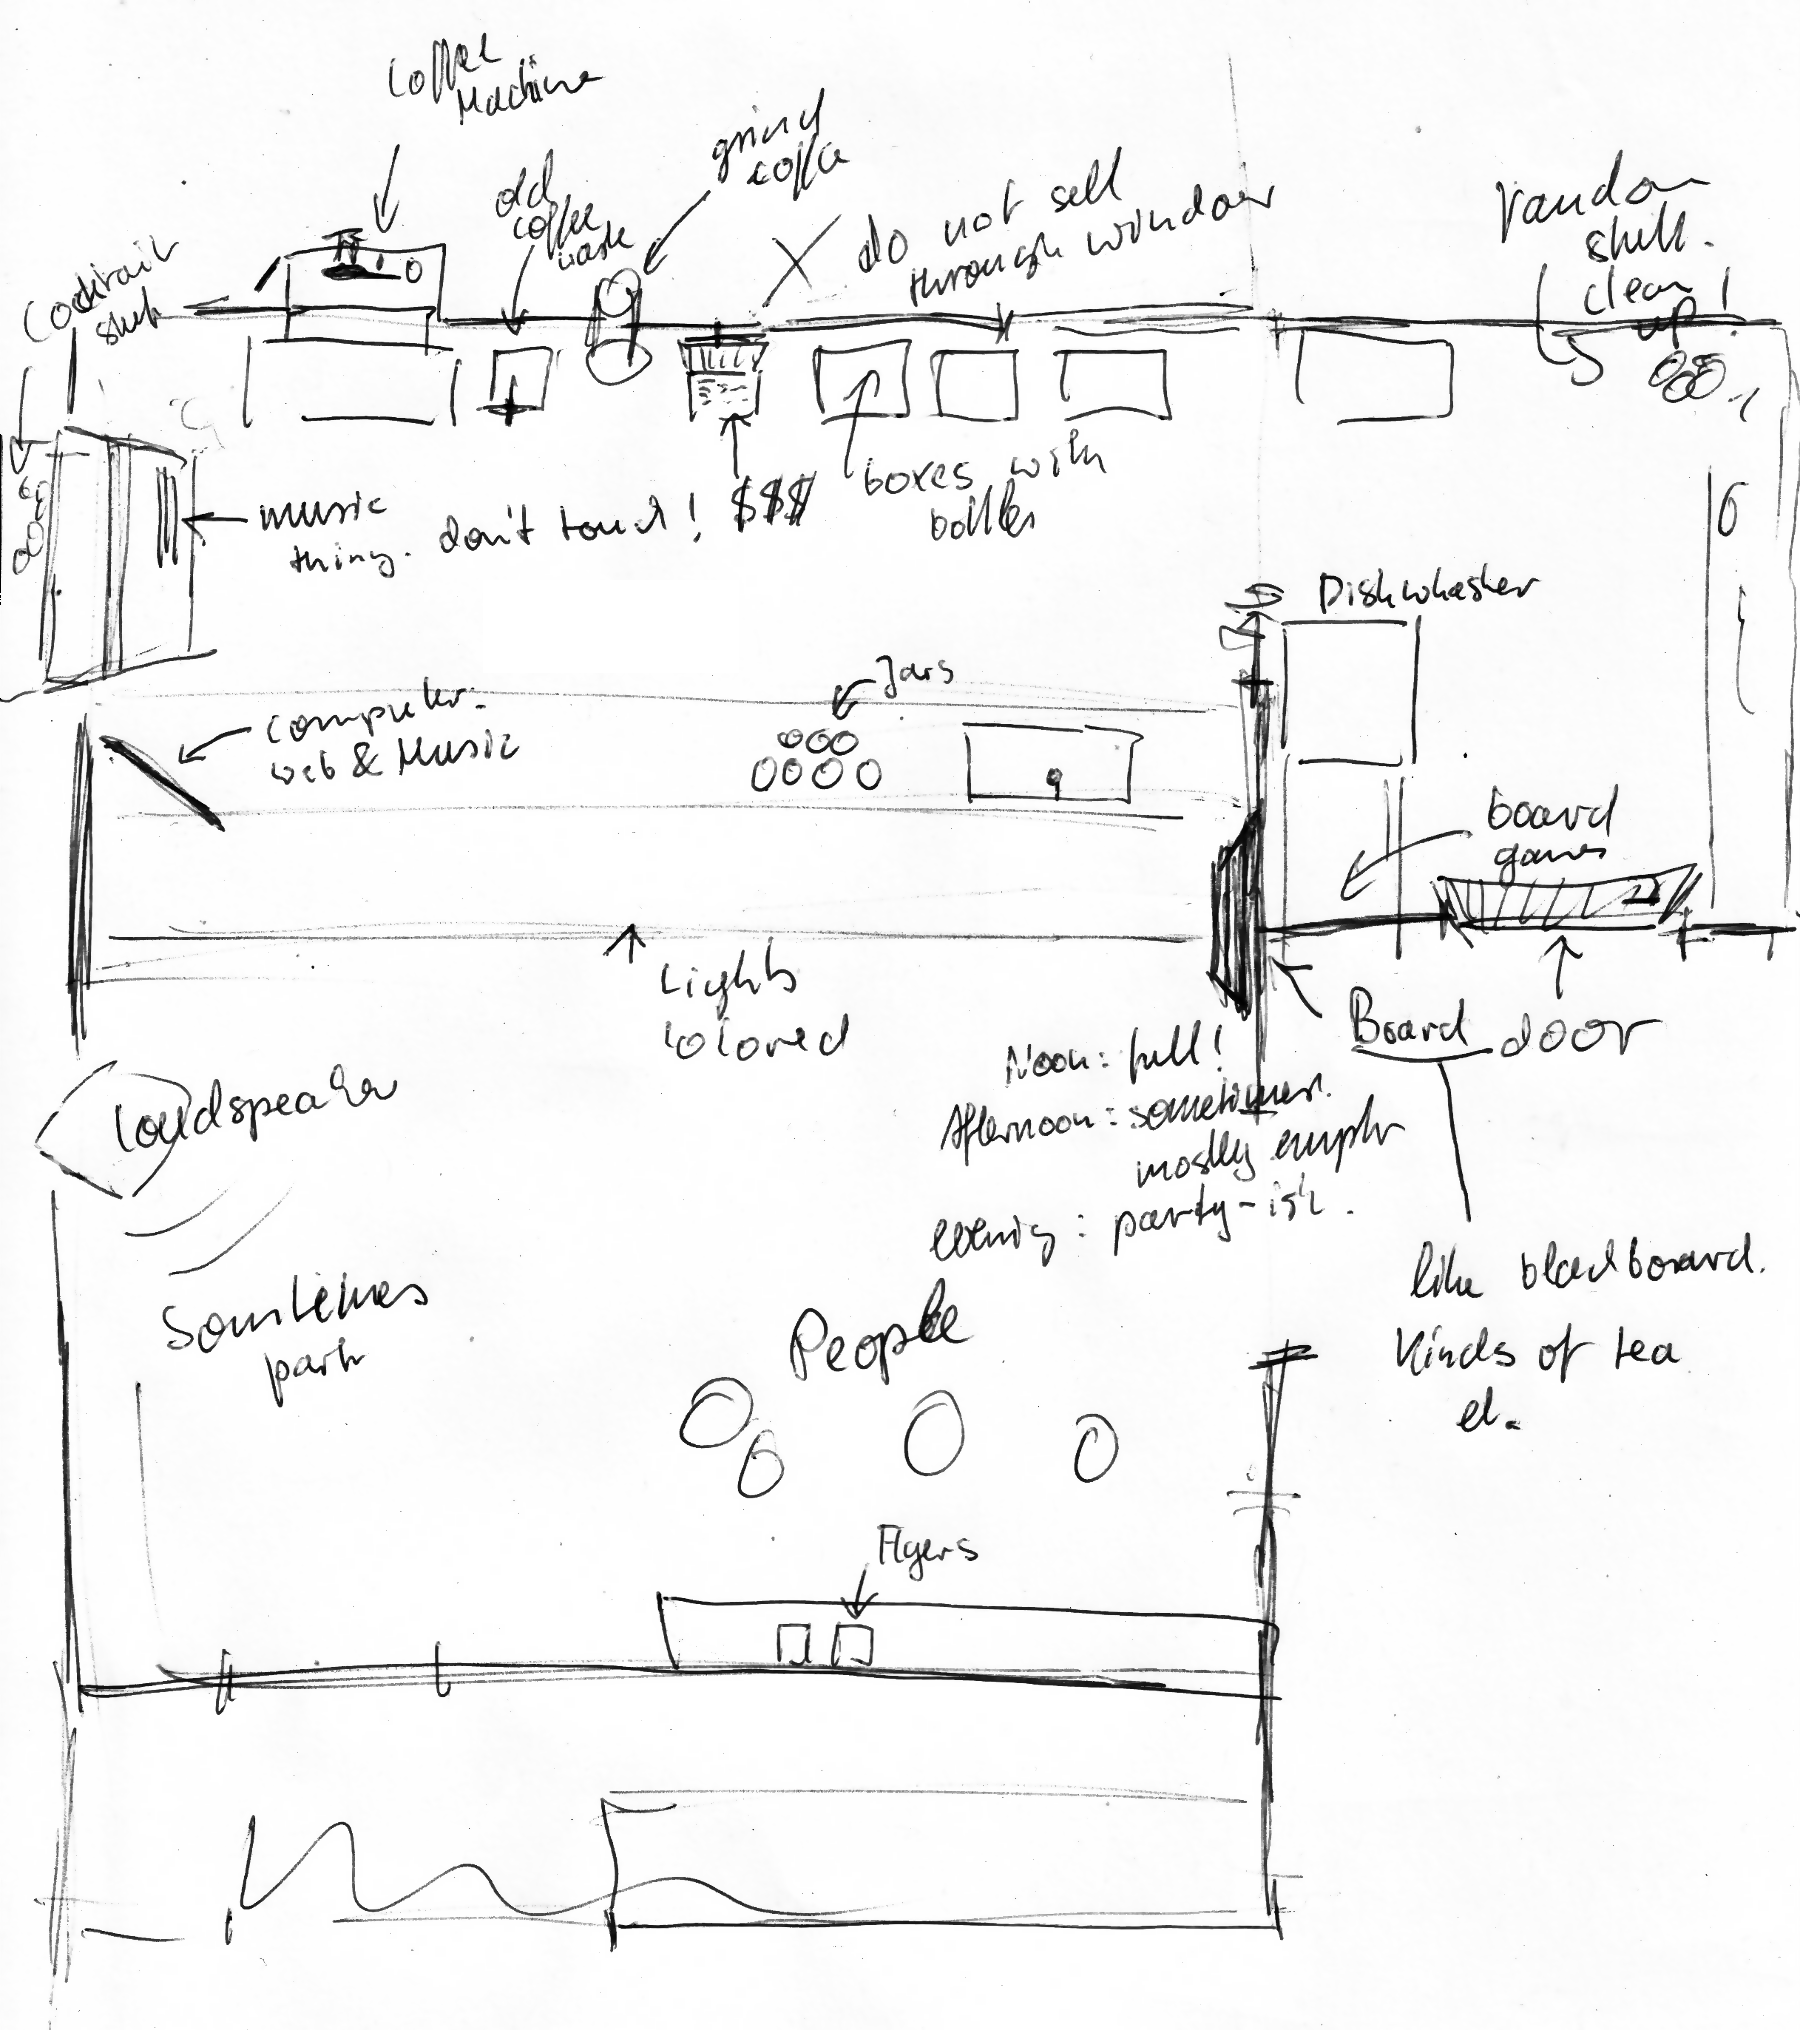 Coffee
Machine
grind
coffe
old
coffee
waste
X do not sell
through window
random
stuff.
clean
up!
Cocktail
stuff
music
thing. don't touch! $$$
boxes with
bottles
Dishwhasher
Jars
computer:
web & Music
board
games
Lights
colored
Board door
Noon: full!
Afternoon: sometimes.
mostly empty
evening: party-ish.
Loudspeaker
like blackboard.
Kinds of tea
Sometimes
part
People
Flyers